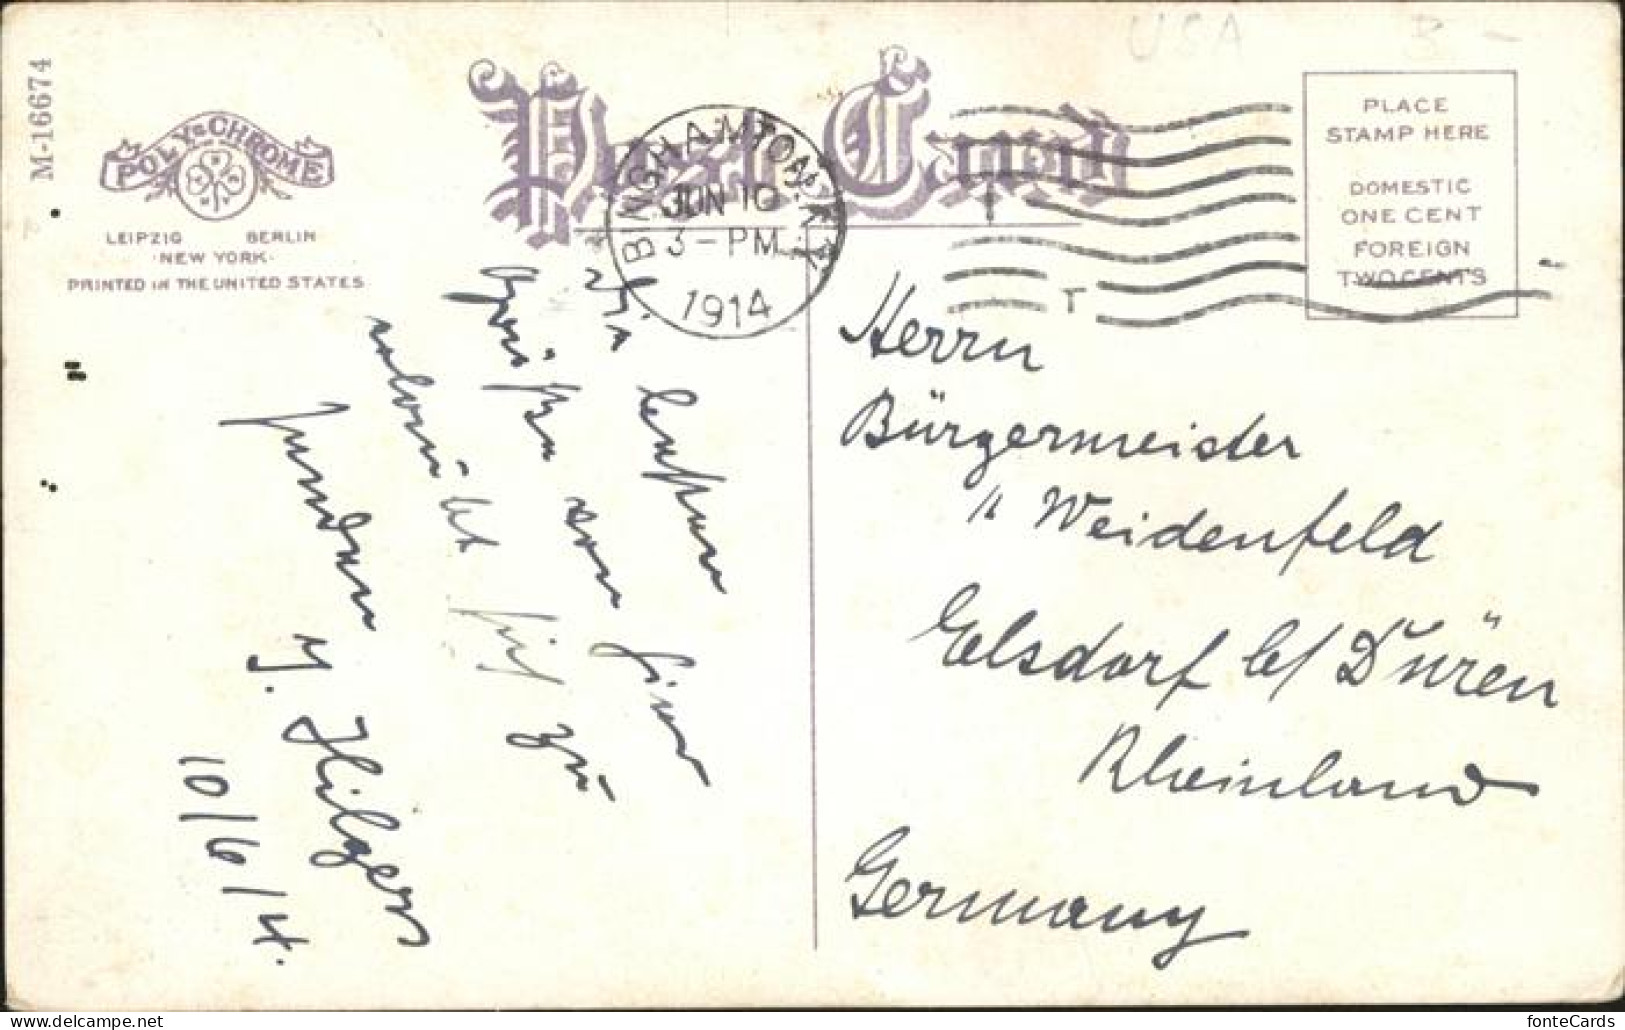 USA B -
M-16674
POLY-CHROME
LEIPZIG BERLIN
NEW YORK
PRINTED IN THE UNITED STATES
Post Card
BINGHAMTON, N.Y.
JUN 10
3-PM
1914
T
PLACE
STAMP HERE
DOMESTIC
ONE CENT
FOREIGN
TWO CENTS
Die besten
Grüße von hier
erlaubt sich zu
senden
J. Hilgers
10/6/14.
Herrn
Bürgermeister
" Weidenfeld
Elsdorf b/ Düren
Rheinland
Germany
delcampe.net
fonteCards